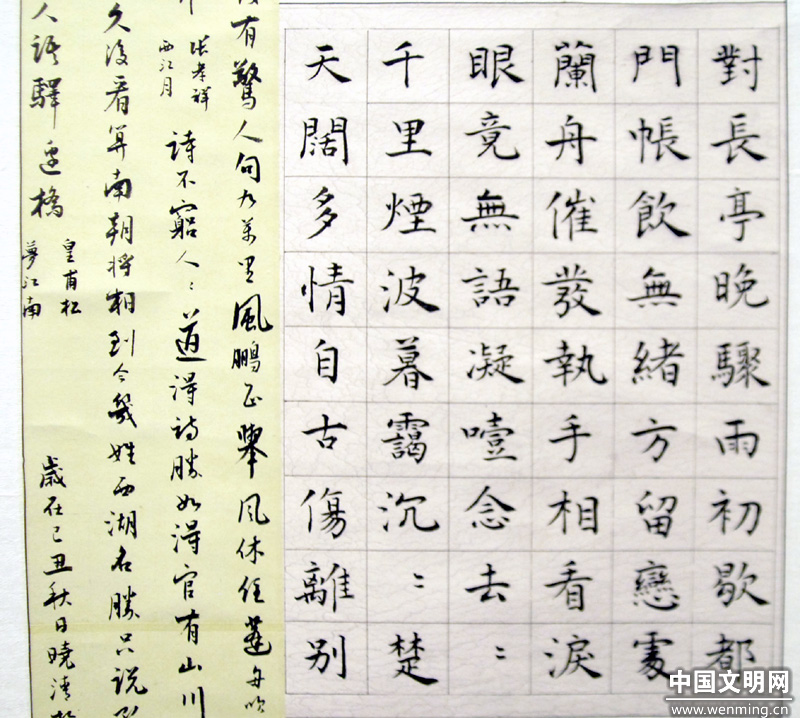 對長亭晚驟雨初歇都
門帳飲無緒方留戀處
蘭舟催發執手相看淚
眼竟無語凝噎念去〻
千里煙波暮靄沉〻楚
天闊多情自古傷離別
有驚人句九萬里風鵬正舉風休住蓬舟吹
張孝祥
西江月
詩不窮人〻道得詩勝如得官有山川
久後看算南朝將相到今幾姓西湖名勝只說
人語驛邊橋
皇甫松
夢江南
歲在己丑秋日曉清
中国文明网
www.wenming.cn